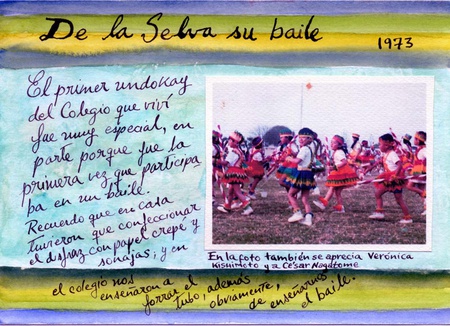 De la Selva su baile
1973
El primer undokay
del Colegio que viví
fue muy especial, en
parte porque fue la
primera vez que participa
ba en un baile.
Recuerdo que en casa
tuvieron que confeccionar
el disfraz con papel crepé y
sonajas; y en
el colegio nos
enseñaron a
forrar el
tubo, además
obviamente,
de enseñarnos
el baile.
En la foto también se aprecia Verónica
Kishimoto y a César Nagatome